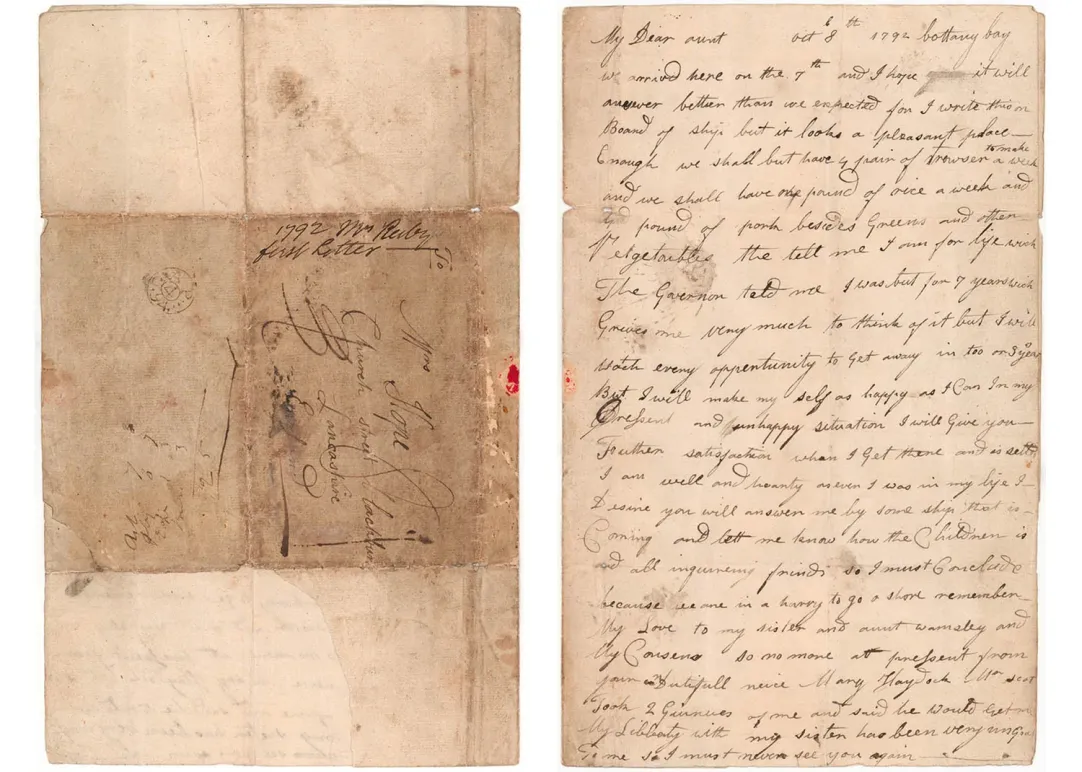 1792 Mrs Reiby
first Letter
To
Mrs Hope
Church Street Blackburn
Lancashire
My Dear aunt Oct 8th 1792 bottany bay
we arrived here on the 7th and I hope it will
answer better than we expected for I write this on
Board of ship but it looks a pleasant place
Enough we shall but have 4 pair of trowser to make a week
and we shall have one pound of rice a week and
4 pound of pork besides Greens and other
Vegetaibles the tell me I am for life wich
The Governor teld me I was but for 7 years wich
Grives me very much to think of it but I will
watch every oppertunity to Get away in too or 3 years
But I will make my self as happy as I Can In my
Pressent and unhappy situation I will Give you
Futher satisfaction when I Get there and is settled
I am well and hearty as ever I was in my life I
Desire you will answer me by some ship that is
Coming and lett me know how the Children is
and all inquireing frinds so I must Conclude
because we are in a hurry to go a shore remember
My Love to my sister and aunt wamsley and
My Cousens so no more at pressent from
your Dutifull neice Mary Haydock Mr scot
Took 2 Guineues of me and said he would Get me
My Libbiaty with my sister has been very ungrat
To me so I must never see you again